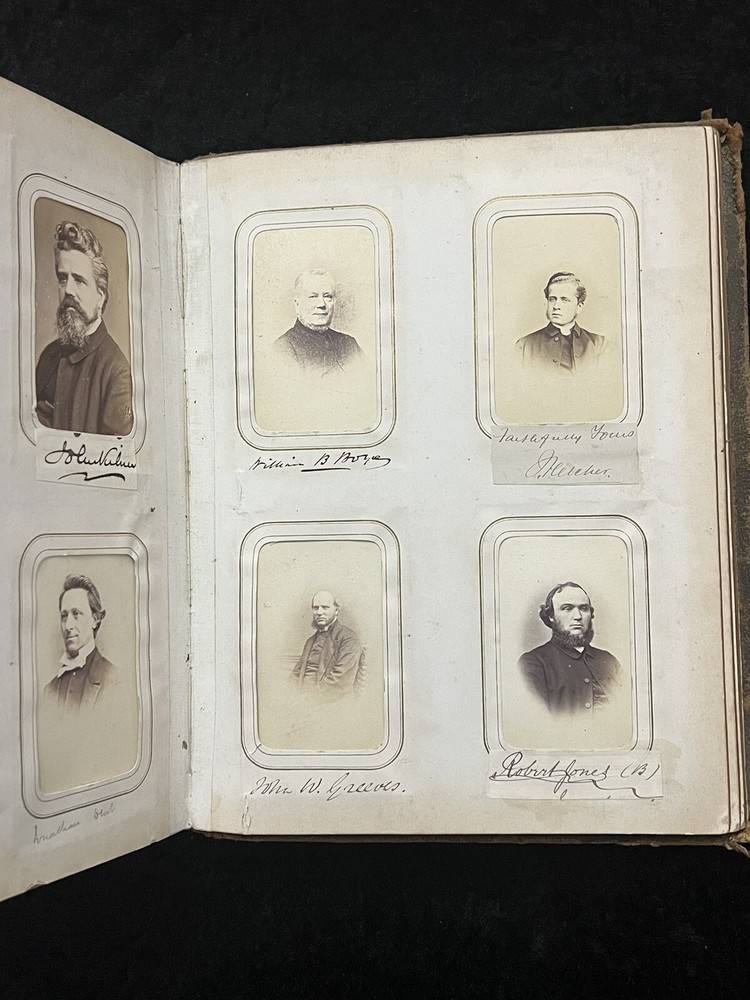 John Kilner
William B Boyce
Faithfully Yours
J Fletcher.
Jonathan
John W. Greeves.
Robert Jones (B)